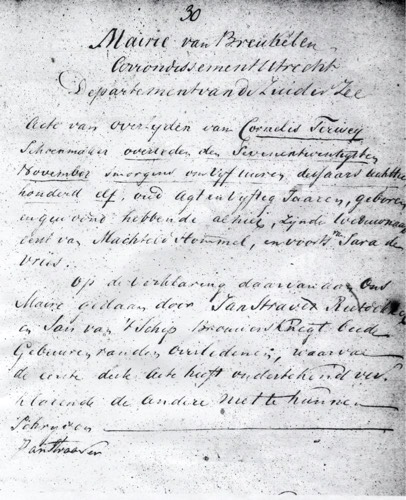 30
Mairie van Breukelen
Corrondissement Utrecht
Departement van de Zuider Zee
Acte van overlyden van Cornelis Terwey
Schoenmaker overleden den Sevenentwentigsten
November smorgens om vyf uuren des jaars achttien
honderd elf, oud Agt en Vyftig Jaaren, geboren
en gewoond hebbende alhier, zynde Weduwnaar
eerst van Machteld Hommel, en voorts Sara de
Vries.
Op de verklaring daarvan aan Ons
Maire gedaan door Jan Straver
en Jan van 't Schip Brouwers Knegt beide
Gebueren van den overledenen, waarvan
de eerste deese Acte heeft ondertekend ver
klarende de andere niet te kunnen
Schryven
Jan Straver